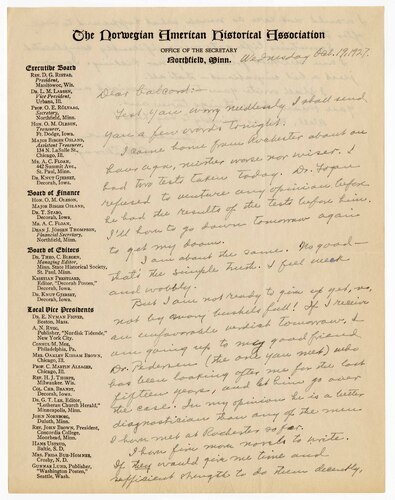 The Norwegian American Historical Association
OFFICE OF THE SECRETARY
Northfield, Minn.
Wednesday Oct. 19, 1927.
Executive Board
REV. D. G. RISTAD,
President,
Manitowoc, Wis.
DR. L. M. LARSEN,
Vice President,
Urbana, Ill.
PROF. O. E. RÖLVAAG,
Secretary,
Northfield, Minn.
HON. O. M. OLESON,
Treasurer,
Ft. Dodge, Iowa.
MAJOR BIRGER OSLAND,
Assistant Treasurer,
134 N. LaSalle St.,
Chicago, Ill.
MR. A. C. FLOAN,
442 Summit Ave.,
St. Paul, Minn.
DR. KNUT GJERSET,
Decorah, Iowa.
Board of Finance
HON. O. M. OLESON,
MAJOR BIRGER OSLAND,
DR. T. STABO,
Decorah, Iowa.
MR. A. C. FLOAN,
DEAN J. JÖRGEN THOMPSON,
Financial Secretary,
Northfield, Minn.
Board of Editors
DR. THEO. C. BLEGEN,
Managing Editor,
Minn. State Historical Society,
St. Paul, Minn.
KRISTIAN PRESTGARD,
Editor, "Decorah Posten,"
Decorah, Iowa.
DR. KNUT GJERSET,
Decorah, Iowa.
Local Vice Presidents
Boston, Mass.
A. N. RYGG,
Publisher, "Nordisk Tidende,"
New York City.
Philadelphia, Pa.
MRS. OAKLEY KISSAM BROWN,
Chicago, Ill.
PROF. C. MARTIN ALSAGER,
Chicago, Ill.
Milwaukee, Wis.
COL. CHR. BRANDT,
Decorah, Iowa.
DR. G. T. LEE, Editor
"Lutheran Church Herald,"
Minneapolis, Minn.
Duluth, Minn.
REV. JOHN BROWN, President,
Concordia College,
Moorhead, Minn.
HANS USTRUD,
Baltic, S. D.
MRS. FRIDA BUE-HOMNES,
Crosby, N. D.
GUNNAR LUND, Publisher,
"Washington Posten,"
Seattle, Wash.
Dear Colcord:—
Lest you worry needlessly I shall send
you a few words tonight.
I came home from Rochester about an
hour ago, neither worse nor wiser. I
had two tests taken today. Dr.
refused to venture any opinion before
he had the results of the tests before him.
I'll have to go down tomorrow again
to get my doom.
I am about the same. No good —
that's the simple truth. I feel weak
and wobbly.
But I am not ready to give up yet, no,
not by many bushels full! If I receive
an unfavorable verdict tomorrow, I
am going up to my good friend
Dr. Pedersen (the one you met) who
has been looking after me for the last
fifteen years, and let him go over
the case. In my opinion he is a better
diagnostician than any of the men
I have met at Rochester so far.
I have five more novels to write.
If they would give me time and
sufficient strength to do them decently,